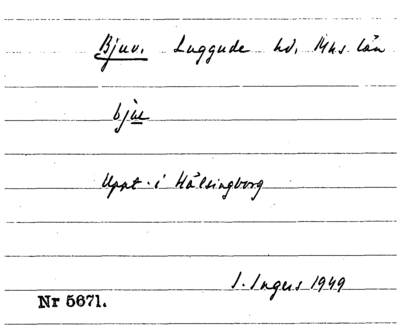 Bjuv. Luggude hd. Mhs län
bjuv
Uppt. i Hälsingborg
I. Ingers 1949
Nr 5671.